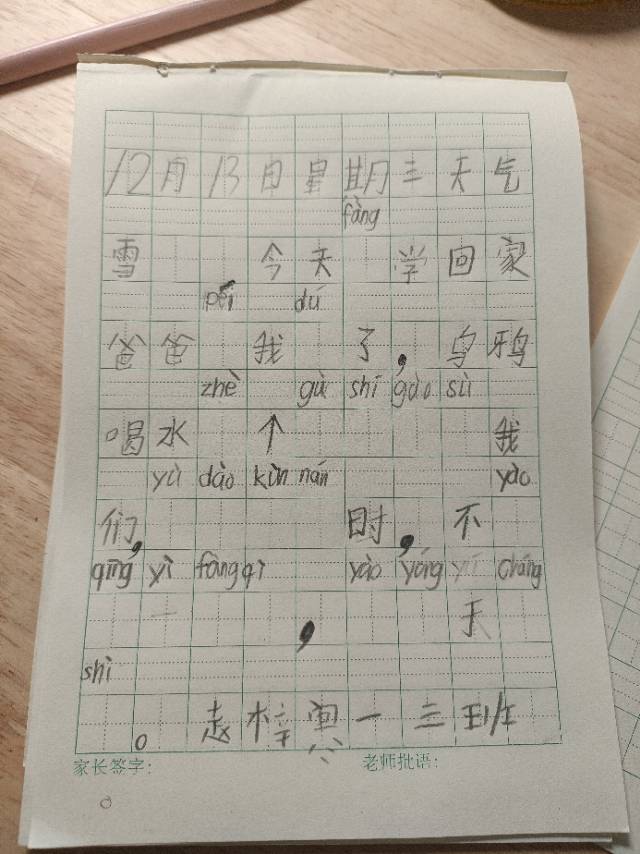 12月13日星期三天气
fàng
雪 今天 学回家
péi dú
爸爸 我 了，乌鸦
zhè gù shi gào sù
喝水 个 我
yù dào kùn nán yào
们， 时，不
qīng yì fàng qì yào yǒng yú cháng
一 ， 天
shì
。 赵梓 一三班
家长签字： 老师批语：